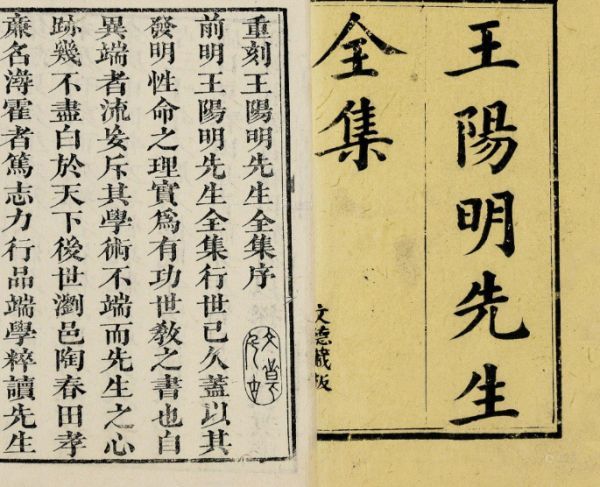 王陽明先生
全集
文德藏板
重刻王陽明先生全集序
前明王陽明先生全集行世已久蓋以其
發明性命之理實爲有功世敎之書也自
異端者流妄斥其學術不端而先生之心
跡幾不盡白於天下後世瀏邑陶春田孝
亷名潯霍者篤志力行品端學粹讀先生